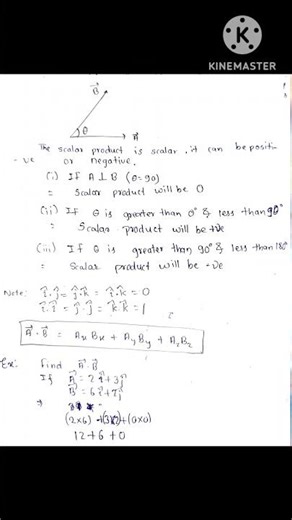 K
KINEMASTER
B
θ
A
The scalar product is scalar, it can be positi-
-ve or negative.
(i) If A ⊥ B (θ=90)
= Scalar product will be 0
(ii) If θ is greater than 0° & less than 90°
= Scalar product will be +ve
(iii) If θ is greater than 90° & less than 180°
= Scalar product will be -ve
Note: î.ĵ = ĵ.k̂ = î.k̂ = 0
î.î = ĵ.ĵ = k̂.k̂ = 1
A⃗.B⃗ = AxBx + AyBy + AzBz
Ex: Find A⃗.B⃗
If A⃗ = 2î+3ĵ
B⃗ = 6î+2ĵ
(2×6) +(3×2)+(0×0)
12+6+0